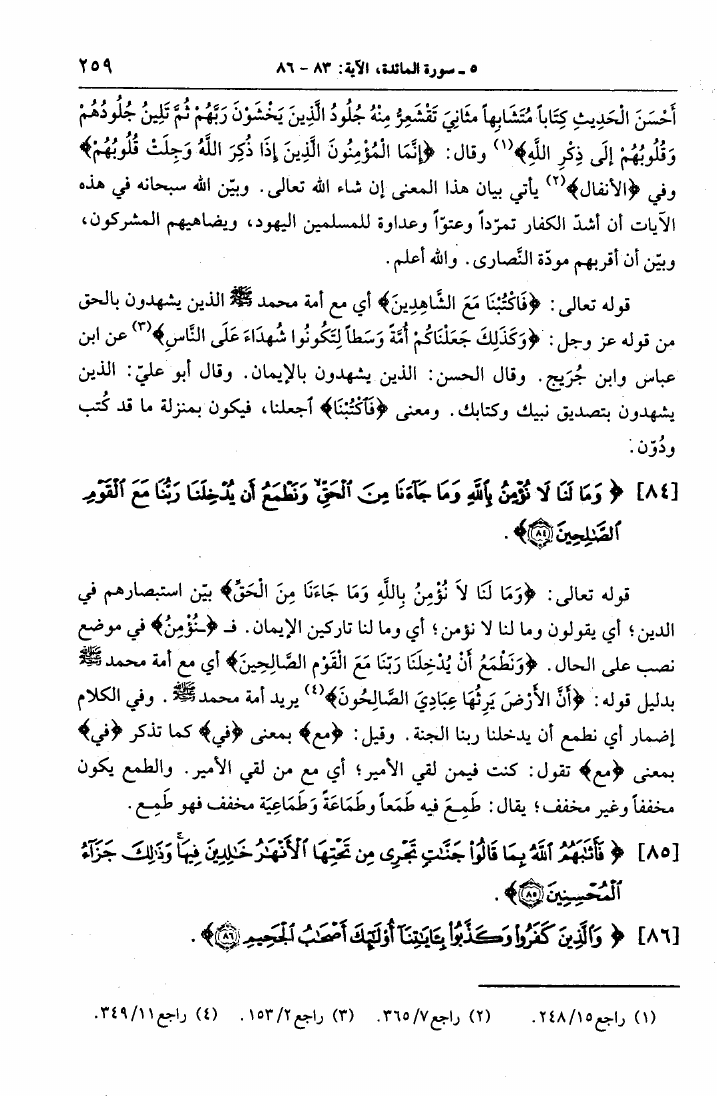 ٥ ـ سورة المائدة، الآية: ٨٣ – ٨٦ ٢٥٩
أَحْسَنَ الْحَدِيثِ كِتَاباً مُتَشَابِهاً مثَانِيَ تَقْشَعِرُّ مِنْهُ جُلُودُ الَّذِينَ يَخْشَوْنَ رَبَّهُم ثُمَّ تَلِينُ جُلُودُهُمْ
وَقُلُوبُهُمْ إِلَى ذِكْرِ اللَّهِ﴾(١) وقال: ﴿إِنَّمَا الْمُؤْمِنُونَ الَّذِينَ إِذَا ذُكِرَ اللَّهُ وَجِلَتْ قُلُوبُهُمْ﴾
وفي ﴿الأنفال﴾(٢) يأتي بيان هذا المعنى إن شاء الله تعالى. وبيّن الله سبحانه في هذه
الآيات أن أشدّ الكفار تمرّداً وعتوّاً وعداوة للمسلمين اليهود، ويضاهيهم المشركون،
وبيّن أن أقربهم مودّة النَّصارى. والله أعلم.
قوله تعالى: ﴿فَاكْتُبْنَا مَعَ الشَّاهِدِينَ﴾ أي مع أمة محمد ﷺ الذين يشهدون بالحق
من قوله عز وجل: ﴿وَكَذَلِكَ جَعَلْنَاكُمْ أُمَّةً وَسَطاً لِتَكُونُوا شُهَدَاءَ عَلَى النَّاسِ﴾(٣) عن ابن
عباس وابن جُرَيج. وقال الحسن: الذين يشهدون بالإيمان. وقال أبو عليّ: الذين
يشهدون بتصديق نبيك وكتابك. ومعنى ﴿فَاكْتُبْنَا﴾ اجعلنا، فيكون بمنزلة ما قد كُتب
ودُوّن.
[٨٤] ﴿ وَمَا لَنَا لَا نُؤْمِنُ بِٱللَّهِ وَمَا جَآءَنَا مِنَ ٱلْحَقِّ وَنَطْمَعُ أَن يُدْخِلَنَا رَبُّنَا مَعَ ٱلْقَوْمِ
ٱلصَّٰلِحِينَ ۝٨٤﴾.
قوله تعالى: ﴿وَمَا لَنَا لاَ نُؤْمِنُ بِاللَّهِ وَمَا جَاءَنَا مِنَ الْحَقِّ﴾ بيّن استبصارهم في
الدين؛ أي يقولون وما لنا لا نؤمن؛ أي وما لنا تاركين الإيمان. فـ ﴿ـنُؤْمِنُ﴾ في موضع
نصب على الحال. ﴿وَنَطْمَعُ أَنْ يُدْخِلَنَا رَبَّنَا مَعَ الْقَوْمِ الصَّالِحِينَ﴾ أي مع أمة محمد ﷺ
بدليل قوله: ﴿أَنَّ الأَرْضَ يَرِثُهَا عِبَادِيَ الصَّالِحُونَ﴾(٤) يريد أمة محمد ﷺ. وفي الكلام
إضمار أي نطمع أن يدخلنا ربنا الجنة. وقيل: ﴿مع﴾ بمعنى ﴿في﴾ كما تذكر ﴿في﴾
بمعنى ﴿مع﴾ تقول: كنت فيمن لقي الأمير؛ أي مع من لقي الأمير. والطمع يكون
مخففاً وغير مخفف؛ يقال: طَمِعَ فيه طَمَعاً وطَمَاعَةً وَطَمَاعِيَة مخفف فهو طَمِع.
[٨٥] ﴿ فَأَثَٰبَهُمُ ٱللَّهُ بِمَا قَالُوا۟ جَنَّٰتٍ تَجْرِى مِن تَحْتِهَا ٱلْأَنْهَٰرُ خَٰلِدِينَ فِيهَا ۚ وَذَٰلِكَ جَزَآءُ
ٱلْمُحْسِنِينَ ۝٨٥﴾.
[٨٦] ﴿ وَٱلَّذِينَ كَفَرُوا۟ وَكَذَّبُوا۟ بِـَٔايَٰتِنَآ أُو۟لَٰٓئِكَ أَصْحَٰبُ ٱلْجَحِيمِ ۝٨٦﴾.
(١) راجع ١٥/٢٤٨. (٢) راجع ٧/٣٦٥. (٣) راجع ٢/١٥٣. (٤) راجع ١١/٣٤٩.